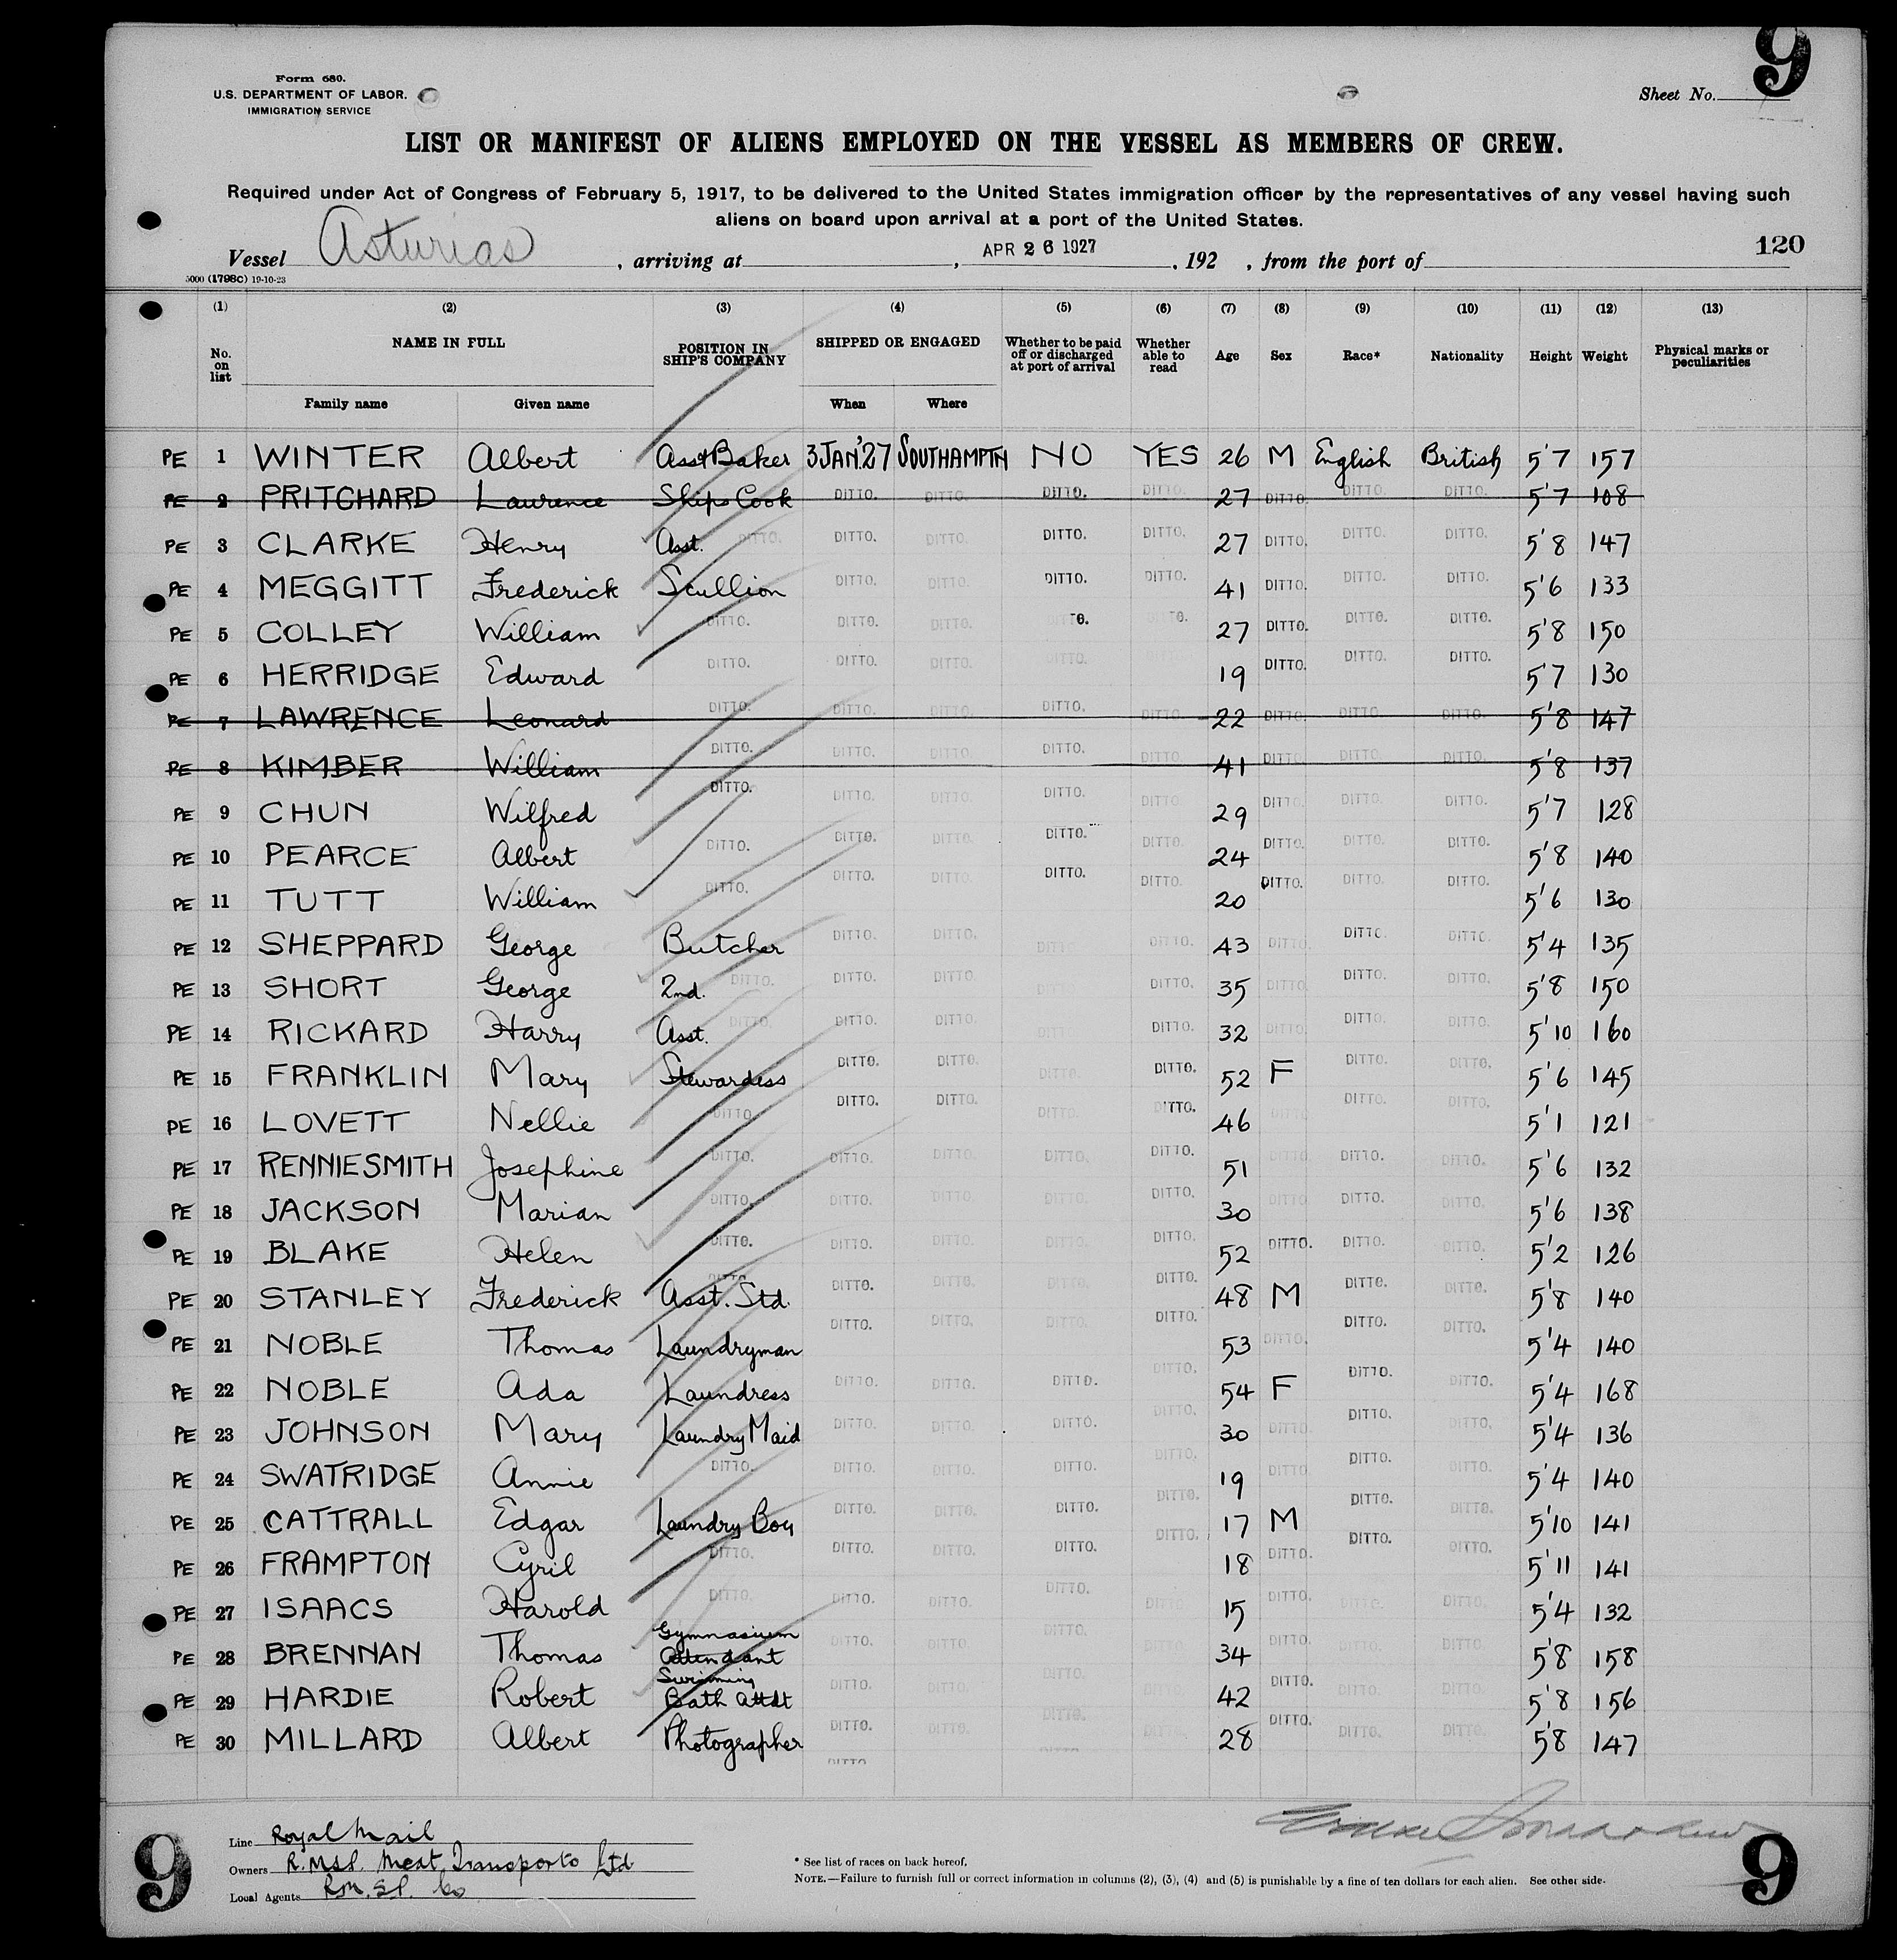 9
Form 680.
U.S. DEPARTMENT OF LABOR.
IMMIGRATION SERVICE
Sheet No.
LIST OR MANIFEST OF ALIENS EMPLOYED ON THE VESSEL AS MEMBERS OF CREW.
Required under Act of Congress of February 5, 1917, to be delivered to the United States immigration officer by the representatives of any vessel having such
aliens on board upon arrival at a port of the United States.
120
Vessel Asturias, arriving at , APR 26 1927, 192 , from the port of
5000 (1798C) 19-10-23
(1) (2) (3) (4) (5) (6) (7) (8) (9) (10) (11) (12) (13)
No. on list NAME IN FULL POSITION IN SHIP'S COMPANY SHIPPED OR ENGAGED Whether to be paid off or discharged at port of arrival Whether able to read Age Sex Race* Nationality Height Weight Physical marks or peculiarities
Family name Given name When Where
PE 1 WINTER Albert Asst Baker 3 JAN '27 SOUTHAMPTN NO YES 26 M English British 5'7 157
PE 2 PRITCHARD Laurence Ships Cook DITTO. DITTO. DITTO. DITTO. 27 DITTO. DITTO. DITTO. 5'7 108
PE 3 CLARKE Henry Asst. DITTO. DITTO. DITTO. DITTO. DITTO. 27 DITTO. DITTO. DITTO. 5'8 147
PE 4 MEGGITT Frederick Scullion DITTO. DITTO. DITTO. DITTO. 41 DITTO. DITTO. DITTO. 5'6 133
PE 5 COLLEY William DITTO. DITTO. DITTO. 27 DITTO. DITTO. DITTO. 5'8 150
PE 6 HERRIDGE Edward DITTO. DITTO. DITTO. DITTO. 19 DITTO. DITTO. DITTO. 5'7 130
PE 7 LAWRENCE Leonard DITTO. DITTO. DITTO. DITTO. DITTO. 22 DITTO. DITTO. DITTO. 5'8 147
PE 8 KIMBER William DITTO. DITTO. DITTO. DITTO. DITTO. 41 DITTO. DITTO. DITTO. 5'8 137
PE 9 CHUN Wilfred DITTO. DITTO. DITTO. DITTO. DITTO. 29 DITTO. DITTO. DITTO. 5'7 128
PE 10 PEARCE Albert DITTO. DITTO. DITTO. DITTO. DITTO. 24 DITTO. DITTO. DITTO. 5'8 140
PE 11 TUTT William DITTO. DITTO. DITTO. DITTO. DITTO. 20 DITTO. DITTO. DITTO. 5'6 130
PE 12 SHEPPARD George Butcher DITTO. DITTO. DITTO. DITTO. 43 DITTO. DITTO. DITTO. 5'4 135
PE 13 SHORT George 2nd. DITTO. DITTO. DITTO. DITTO. 35 DITTO. DITTO. DITTO. 5'8 150
PE 14 RICKARD Harry Asst. DITTO. DITTO. DITTO. DITTO. 32 DITTO. DITTO. DITTO. 5'10 160
PE 15 FRANKLIN Mary Stewardess DITTO. DITTO. DITTO. DITTO. 52 F DITTO. DITTO. 5'6 145
PE 16 LOVETT Nellie DITTO. DITTO. DITTO. DITTO. DITTO. 46 DITTO. DITTO. 5'1 121
PE 17 RENNIESMITH Josephine DITTO. DITTO. DITTO. DITTO. DITTO. 51 DITTO. DITTO. DITTO. 5'6 132
PE 18 JACKSON Marian DITTO. DITTO. DITTO. DITTO. DITTO. 30 DITTO. DITTO. DITTO. 5'6 138
PE 19 BLAKE Helen DITTO. DITTO. DITTO. DITTO. DITTO. 52 DITTO. DITTO. DITTO. 5'2 126
PE 20 STANLEY Frederick Asst. Std. DITTO. DITTO. DITTO. DITTO. 48 M DITTO. DITTO. 5'8 140
PE 21 NOBLE Thomas Laundryman DITTO. DITTO. DITTO. DITTO. 53 DITTO. DITTO. DITTO. 5'4 140
PE 22 NOBLE Ada Laundress DITTO. DITTO. DITTO. DITTO. 54 F DITTO. DITTO. 5'4 168
PE 23 JOHNSON Mary Laundry Maid DITTO. DITTO. DITTO. DITTO. 30 DITTO. DITTO. DITTO. 5'4 136
PE 24 SWATRIDGE Annie DITTO. DITTO. DITTO. DITTO. DITTO. 19 DITTO. DITTO. DITTO. 5'4 140
PE 25 CATTRALL Edgar Laundry Boy DITTO. DITTO. DITTO. DITTO. 17 M DITTO. DITTO. 5'10 141
PE 26 FRAMPTON Cyril DITTO. DITTO. DITTO. DITTO. DITTO. 18 DITTO. DITTO. DITTO. 5'11 141
PE 27 ISAACS Harold DITTO. DITTO. DITTO. DITTO. DITTO. 15 DITTO. DITTO. DITTO. 5'4 132
PE 28 BRENNAN Thomas Gymnasium Attendant DITTO. DITTO. DITTO. DITTO. 34 DITTO. DITTO. DITTO. 5'8 158
PE 29 HARDIE Robert Swimming Bath Attdt DITTO. DITTO. DITTO. DITTO. 42 DITTO. DITTO. DITTO. 5'8 156
PE 30 MILLARD Albert Photographer DITTO. DITTO. DITTO. DITTO. 28 DITTO. DITTO. DITTO. 5'8 147
DITTO
9
Line Royal Mail
Owners R.M.S.P. Meat Transports Ltd
Local Agents R.M.S.P. Co
* See list of races on back hereof.
NOTE.—Failure to furnish full or correct information in columns (2), (3), (4) and (5) is punishable by a fine of ten dollars for each alien. See other side.
9